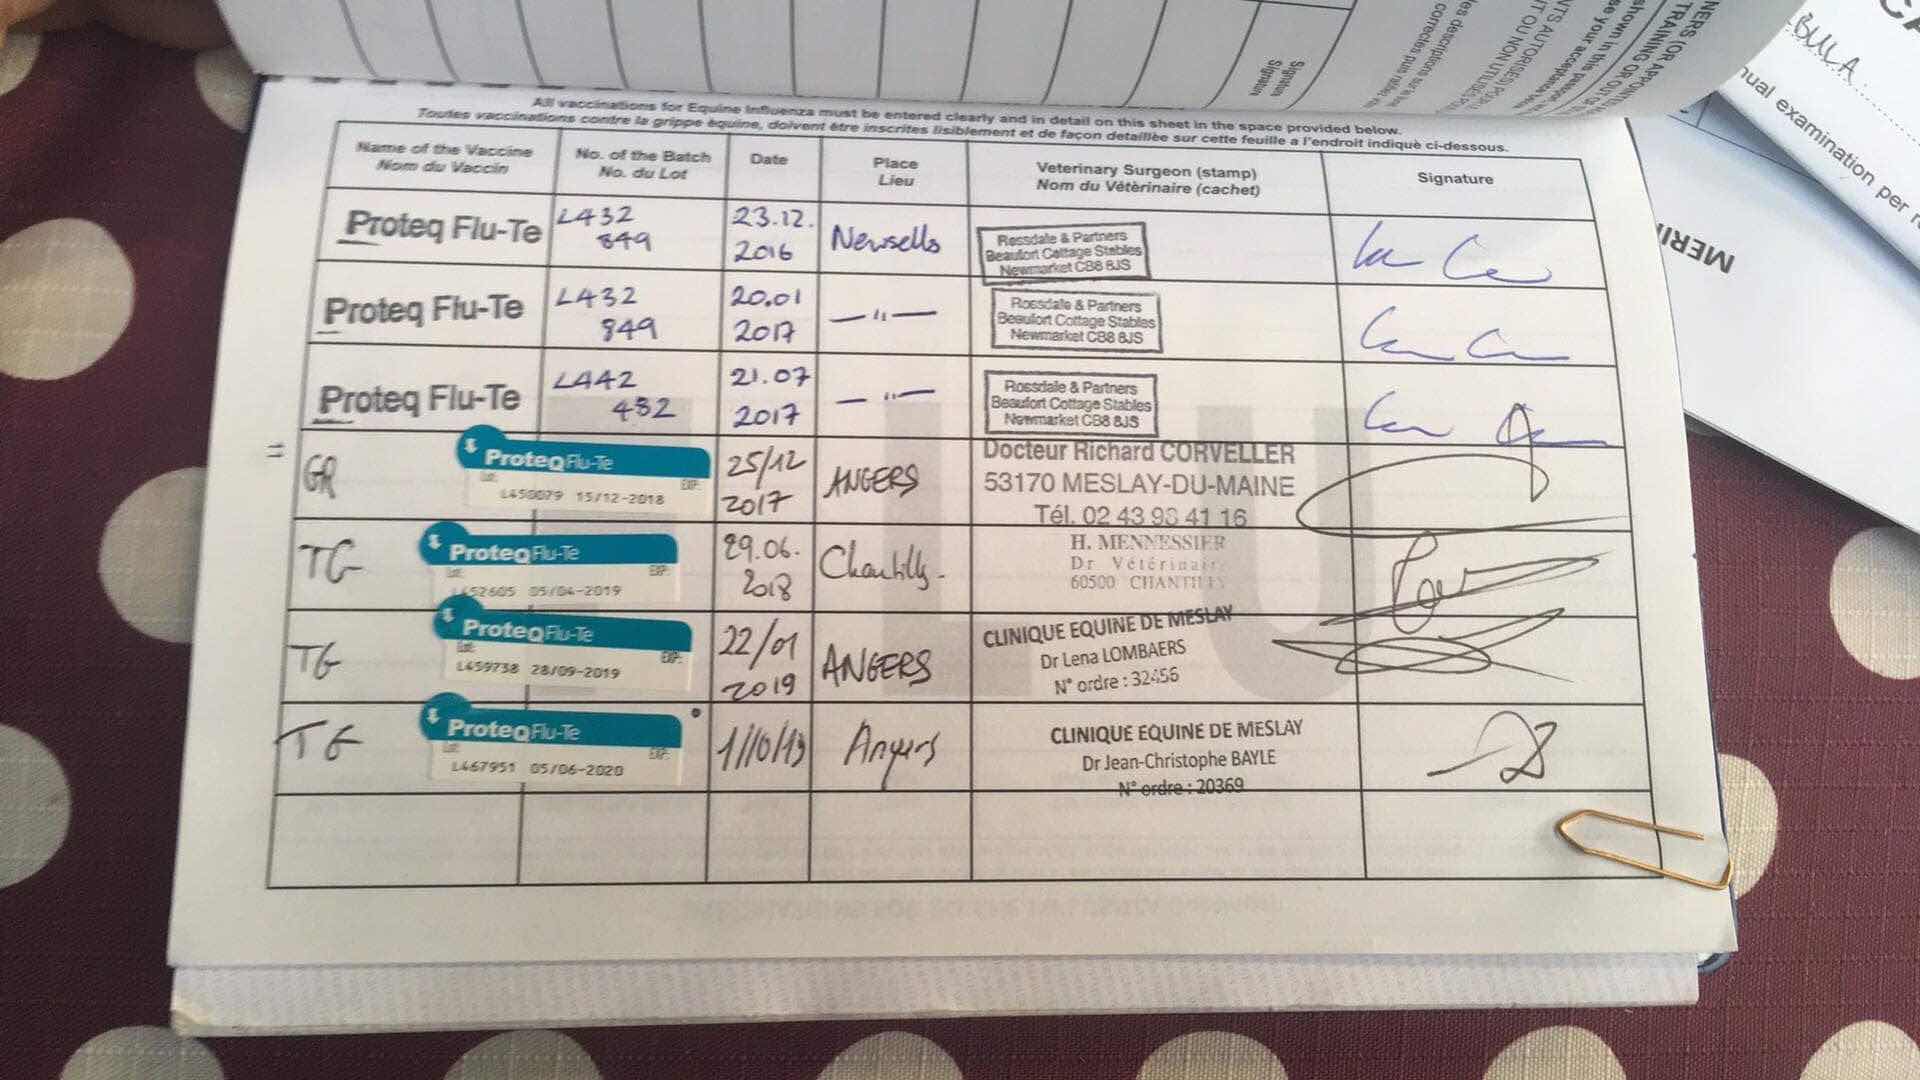 All vaccinations for Equine Influenza must be entered clearly and in detail on this sheet in the space provided below.
Toutes vaccinations contre la grippe équine, doivent être inscrites lisiblement et de façon detaillée sur cette feuille a l'endroit indiquè ci-dessous.
Name of the Vaccine No. of the Batch Date Place Veterinary Surgeon (stamp) Signature
Nom du Vaccin No. du Lot Lieu Nom du Vétèrinaire (cachet)
Proteq Flu-Te L432 23.12. Newsells Rossdale & Partners
849 2016 Beaufort Cottage Stables
Newmarket CB8 8JS
Proteq Flu-Te L432 20.01 —"— Rossdale & Partners
849 2017 Beaufort Cottage Stables
Newmarket CB8 8JS
Proteq Flu-Te L442 21.07 —"— Rossdale & Partners
432 2017 Beaufort Cottage Stables
Newmarket CB8 8JS
GR ProteqFlu-Te 25/12 ANGERS Docteur Richard CORVELLER
Lot: EXP: 53170 MESLAY-DU-MAINE
L450079 15/12-2018 2017 Tél. 02 43 98 41 16
TG ProteqFlu-Te 29.06. Chantilly. H. MENNESSIER
Lot: EXP: Dr Vétérinaire
L452605 05/04-2019 2018 60500 CHANTILLY
TG ProteqFlu-Te 22/01 ANGERS CLINIQUE EQUINE DE MESLAY
Lot: EXP: Dr Lena LOMBAERS
L459738 28/09-2019 2019 N° ordre : 32456
TG ProteqFlu-Te 1/10/19 Angers CLINIQUE EQUINE DE MESLAY
Lot: EXP: Dr Jean-Christophe BAYLE
L467951 05/06-2020 N° ordre : 20369
11
FLU
Signature
BULA
nual examination per
MERI